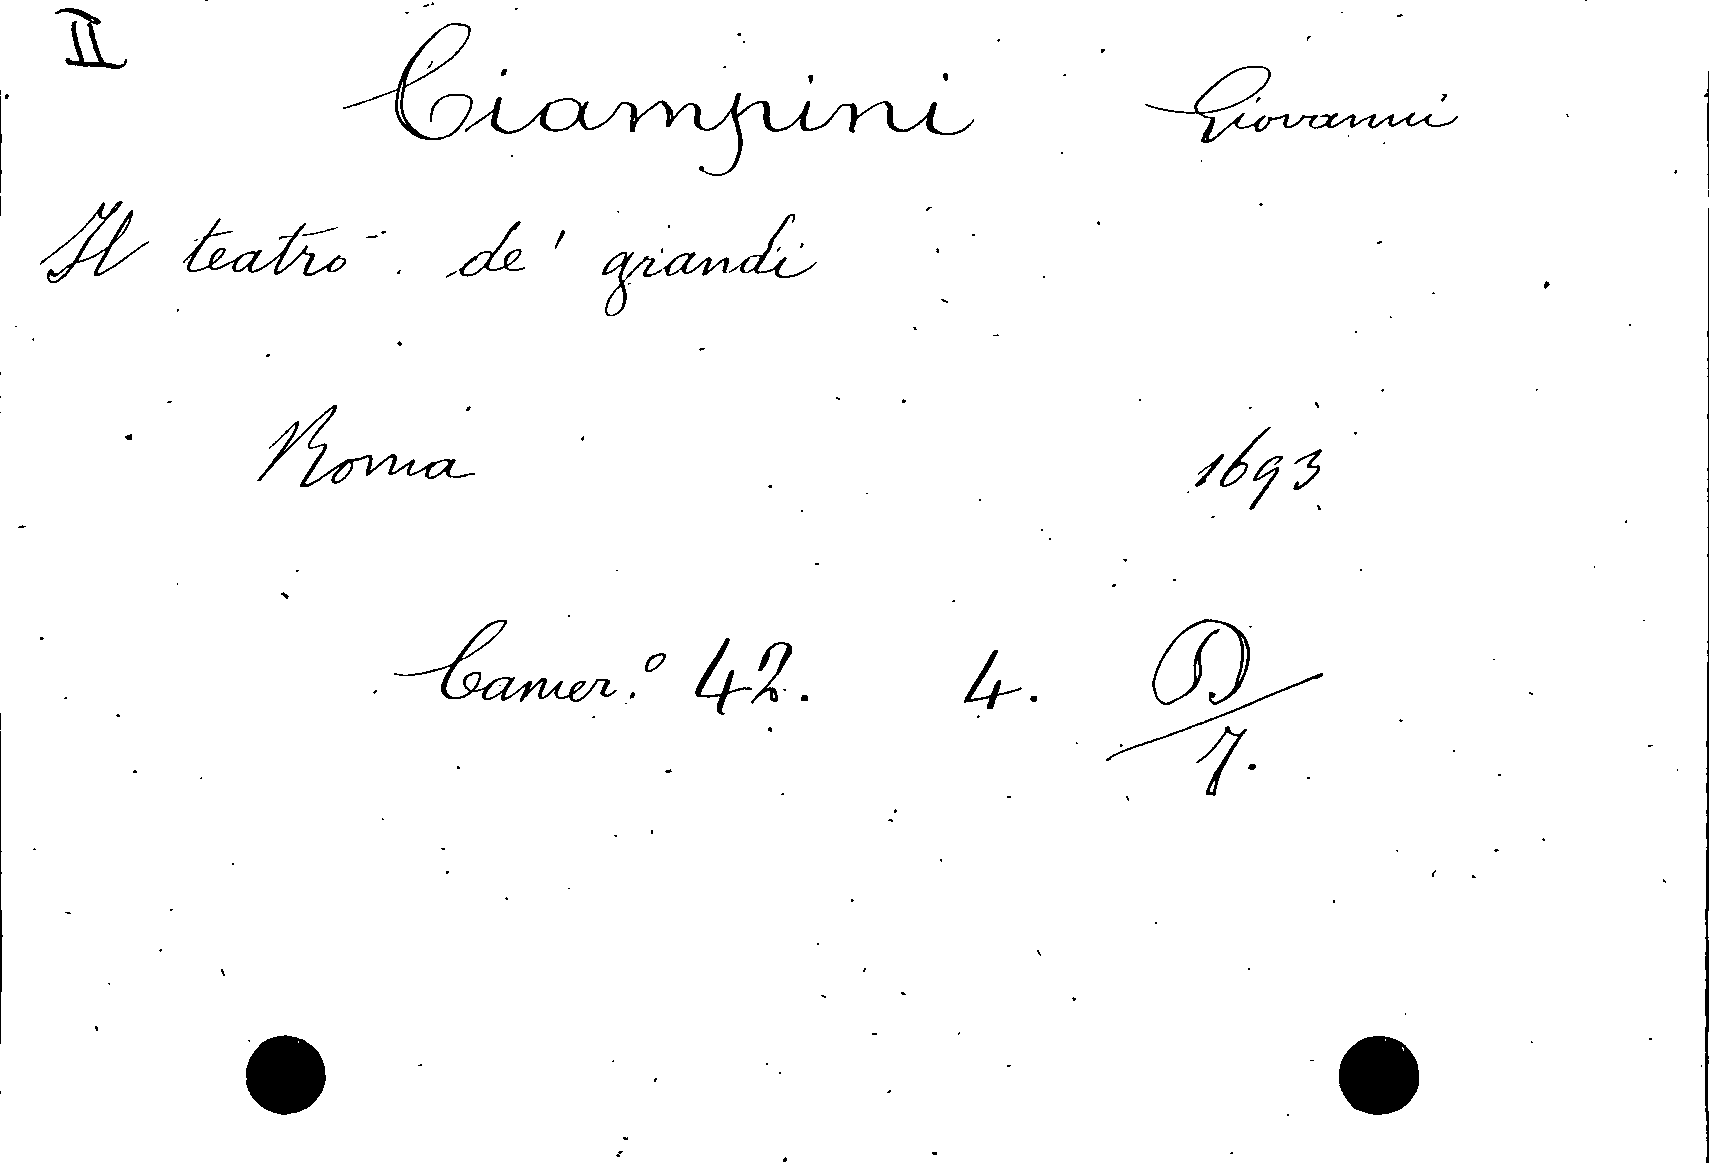 II
Ciampini Giovanni
Il teatro de' grandi
Roma 1693
Camer.° 42. 4. D/7.